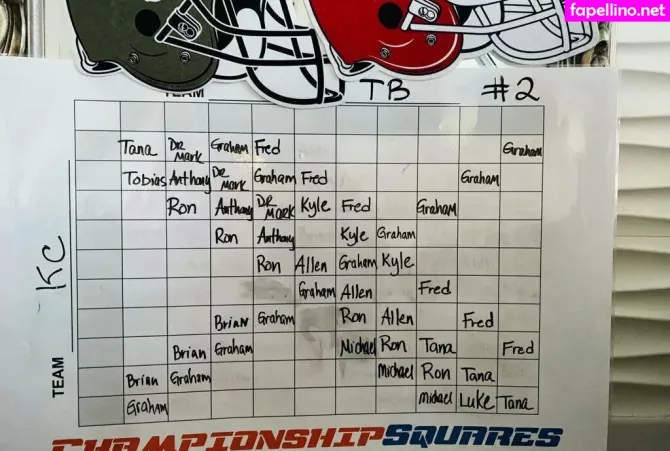 fapellino.net
TEAM TB #2
Tana DR MARK Graham Fred Graham
Tobias Anthony DR MARK Graham Fred Graham
Ron Anthony DR MARK Kyle Fred Graham
Ron Anthony Kyle Graham
Ron Allen Graham Kyle
Graham Allen Fred
Brian Graham Ron Allen Fred
Brian Graham Michael Ron Tana Fred
Brian Graham Michael Ron Tana
Graham Michael Luke Tana
TEAM KC
CHAMPIONSHIP SQUARES